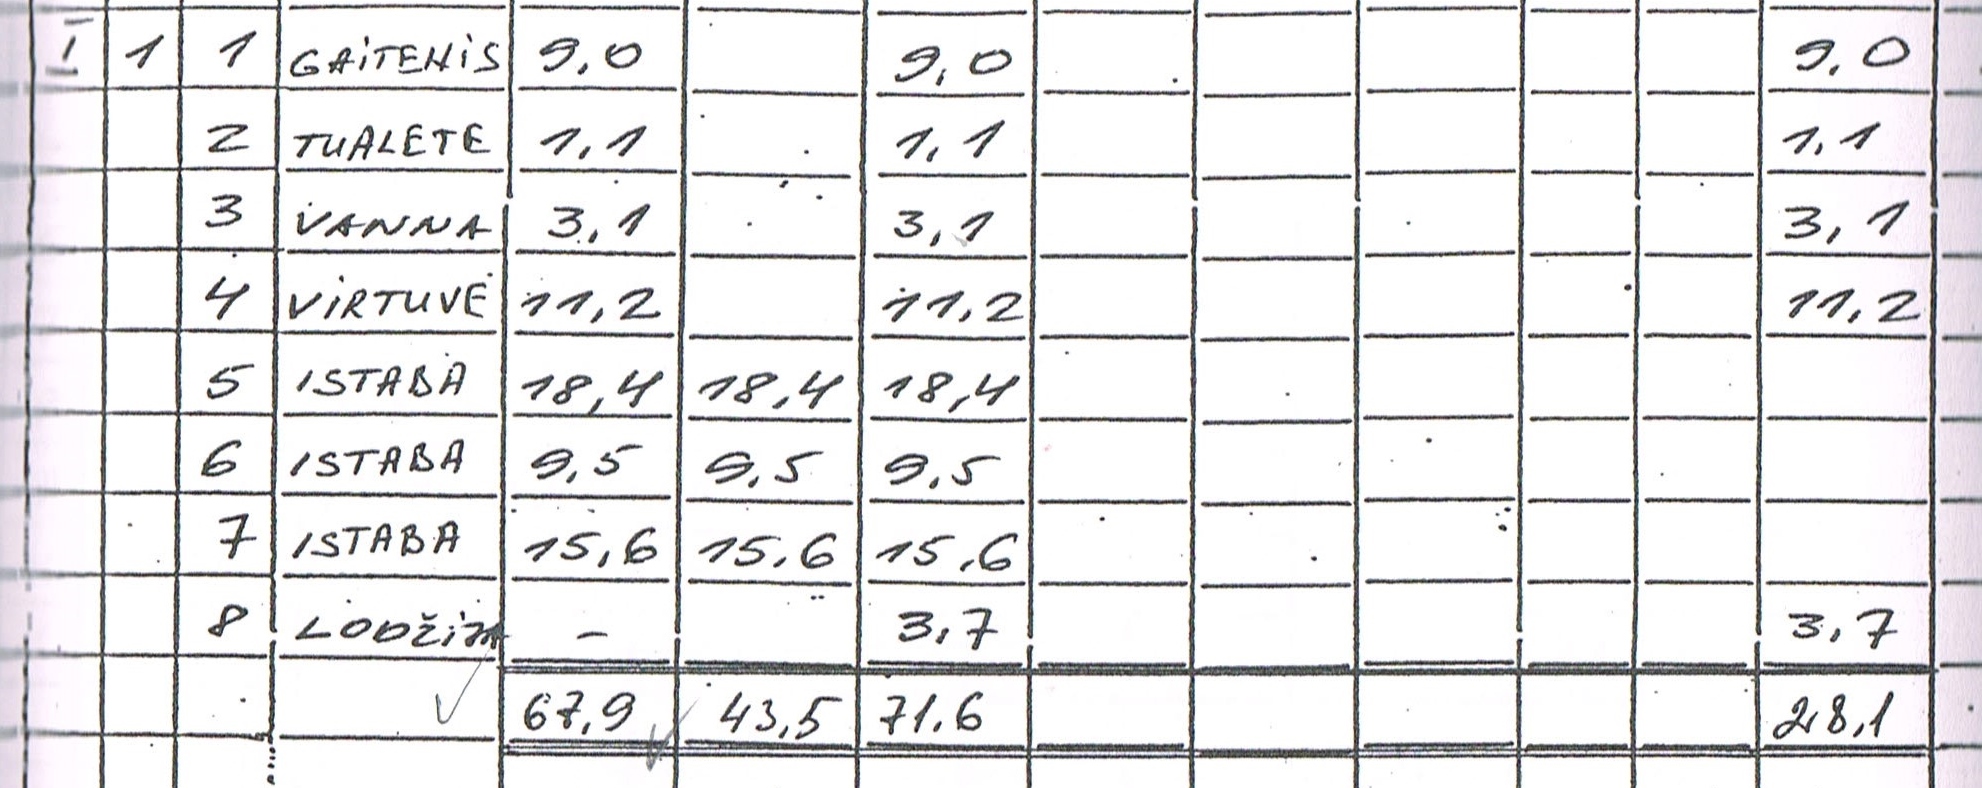 I 1 1 GAITENIS 9,0 9,0 9,0
2 TUALETE 1,1 1,1 1,1
3 VANNA 3,1 3,1 3,1
4 VIRTUVE 11,2 11,2 11,2
5 ISTABA 18,4 18,4 18,4
6 ISTABA 9,5 9,5 9,5
7 ISTABA 15,6 15,6 15,6
8 LODŽIJA – 3,7 3,7
67,9 43,5 71,6 28,1